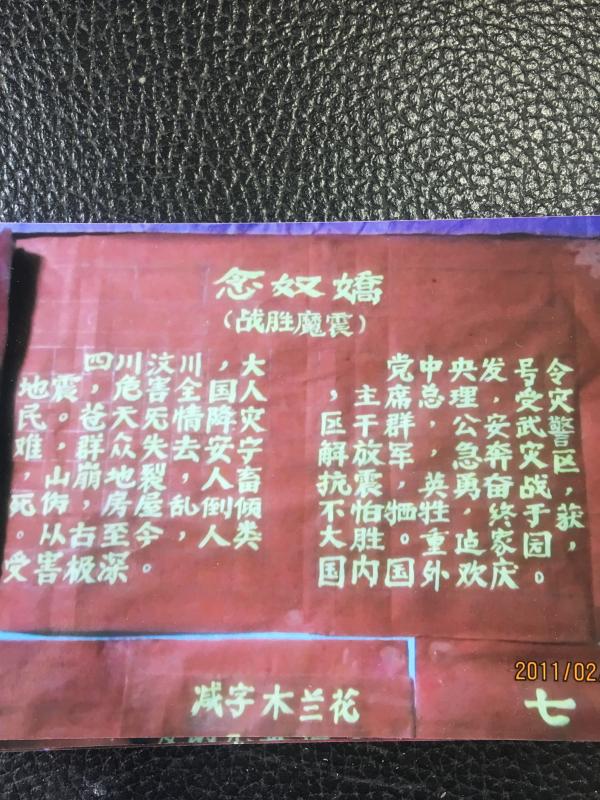 念奴嬌
（战胜魔震）
四川汶川，大
地震，危害全国人
民。苍天无情降灾
难，群众失去安宁
，山崩地裂，人畜
死伤，房屋乱倒倾
。从古至今，人类
受害极深。
党中央发号令
，主席总理，受灾
区干群，公安武警
解放军，急奔灾区，
抗震英勇奋战，
不怕牺牲，终于获
大胜。重建家园，
国内国外欢庆。
减字木兰花
七
2011/02